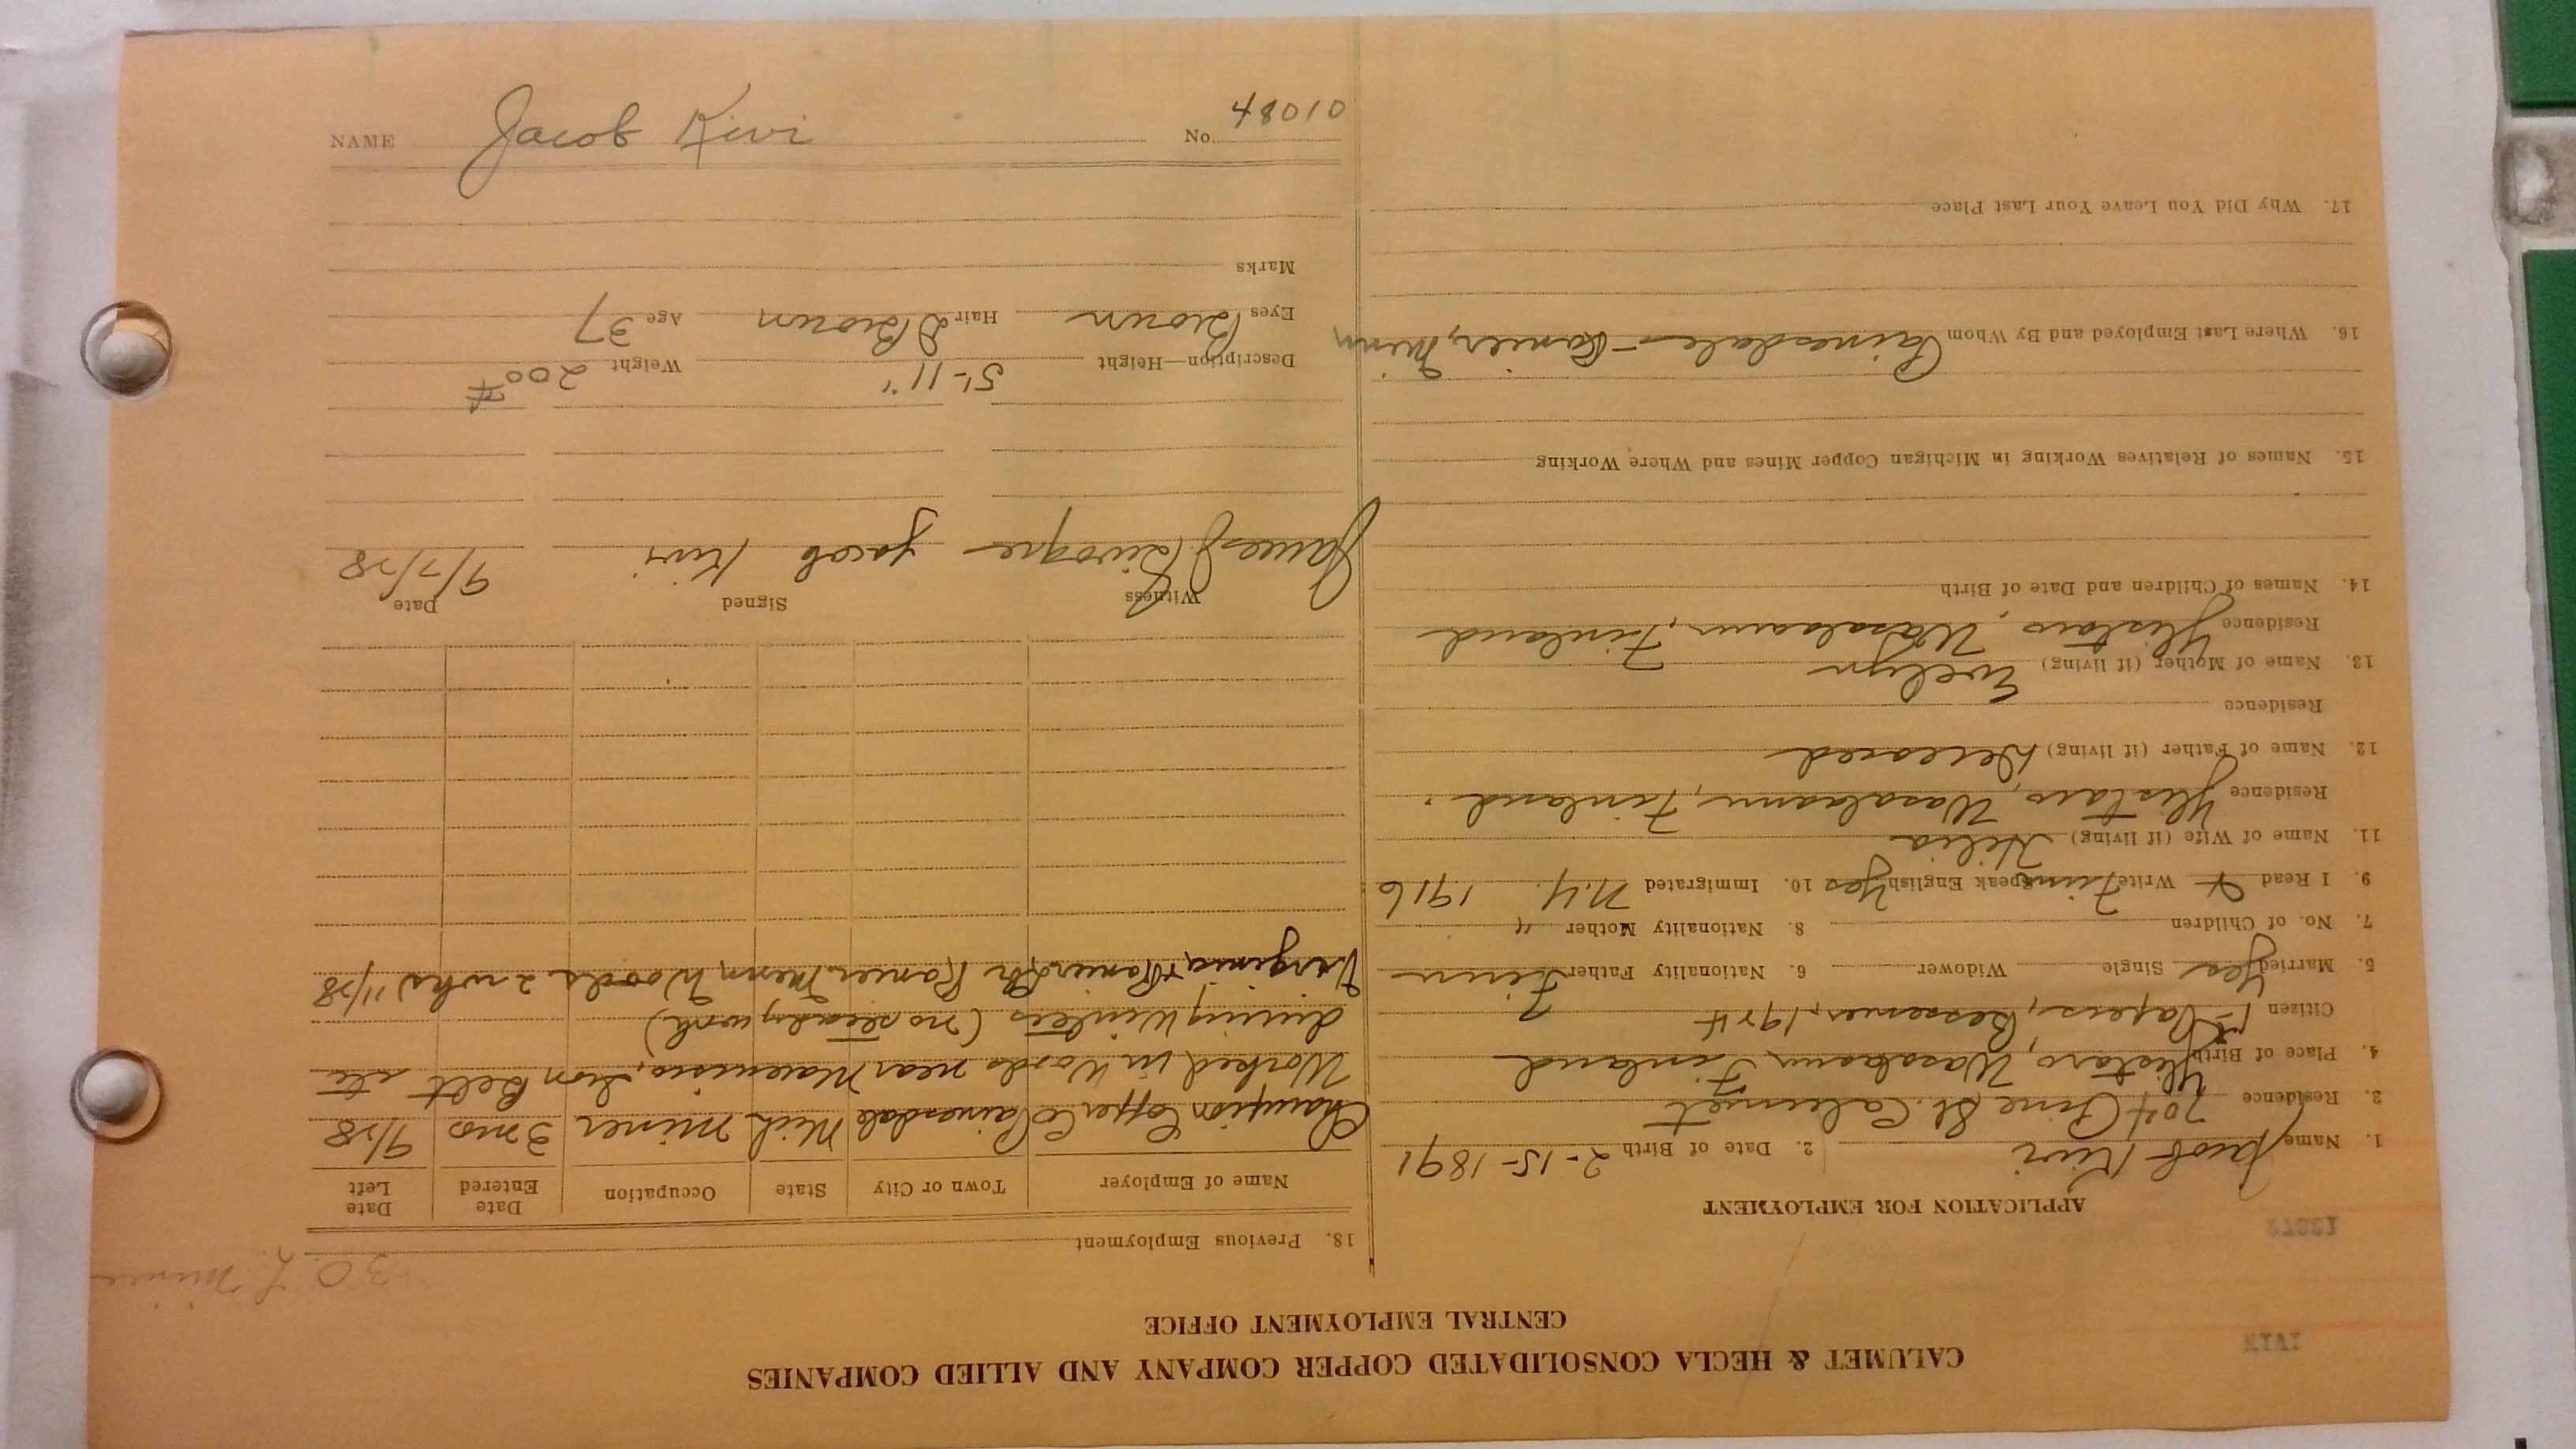 KIVI
CALUMET & HECLA CONSOLIDATED COPPER COMPANY AND ALLIED COMPANIES
CENTRAL EMPLOYMENT OFFICE
12872
APPLICATION FOR EMPLOYMENT
1. Name Jacob Kivi 2. Date of Birth 2-15-1891
3. Residence 704 Pine St. Calumet
4. Place of Birth Ylistaro, Wasalaani Finland
Citizen 1st Papers, Bessemer, 1924
5. Married Yes Single Widower 6. Nationality Father Finn
7. No. of Children 8. Nationality Mother "
9. I Read & Write Finn Speak English Yes 10. Immigrated N.Y. 1916
11. Name of Wife (if living) Hilia
Residence Ylistaro, Wasalaani, Finland.
12. Name of Father (if living) Deceased
Residence
13. Name of Mother (if living) Evelyn
Residence Ylistaro, Wasalaani, Finland
14. Names of Children and Date of Birth
15. Names of Relatives Working in Michigan Copper Mines and Where Working
16. Where Last Employed and By Whom Painesdale - Ranier, Minn
17. Why Did You Leave Your Last Place
30 L. Miner
18. Previous Employment
Name of Employer Town or City State Occupation Date Entered Date Left
Champion Copper Co Painesdale Mich Miner 3 mos 9/28
Worked in Woods near Marenisco, Iron Belt etc
during Winters (no steady work)
Virginia & Ranier Ranier Minn Woods 2 wks 11/28
Witness Signed Date
James Jacob Kivi 9/7/28
Description—Height 5'-11" Weight 200#
Eyes Brown Hair D Brown Age 37
Marks
NAME Jacob Kivi No. 48010